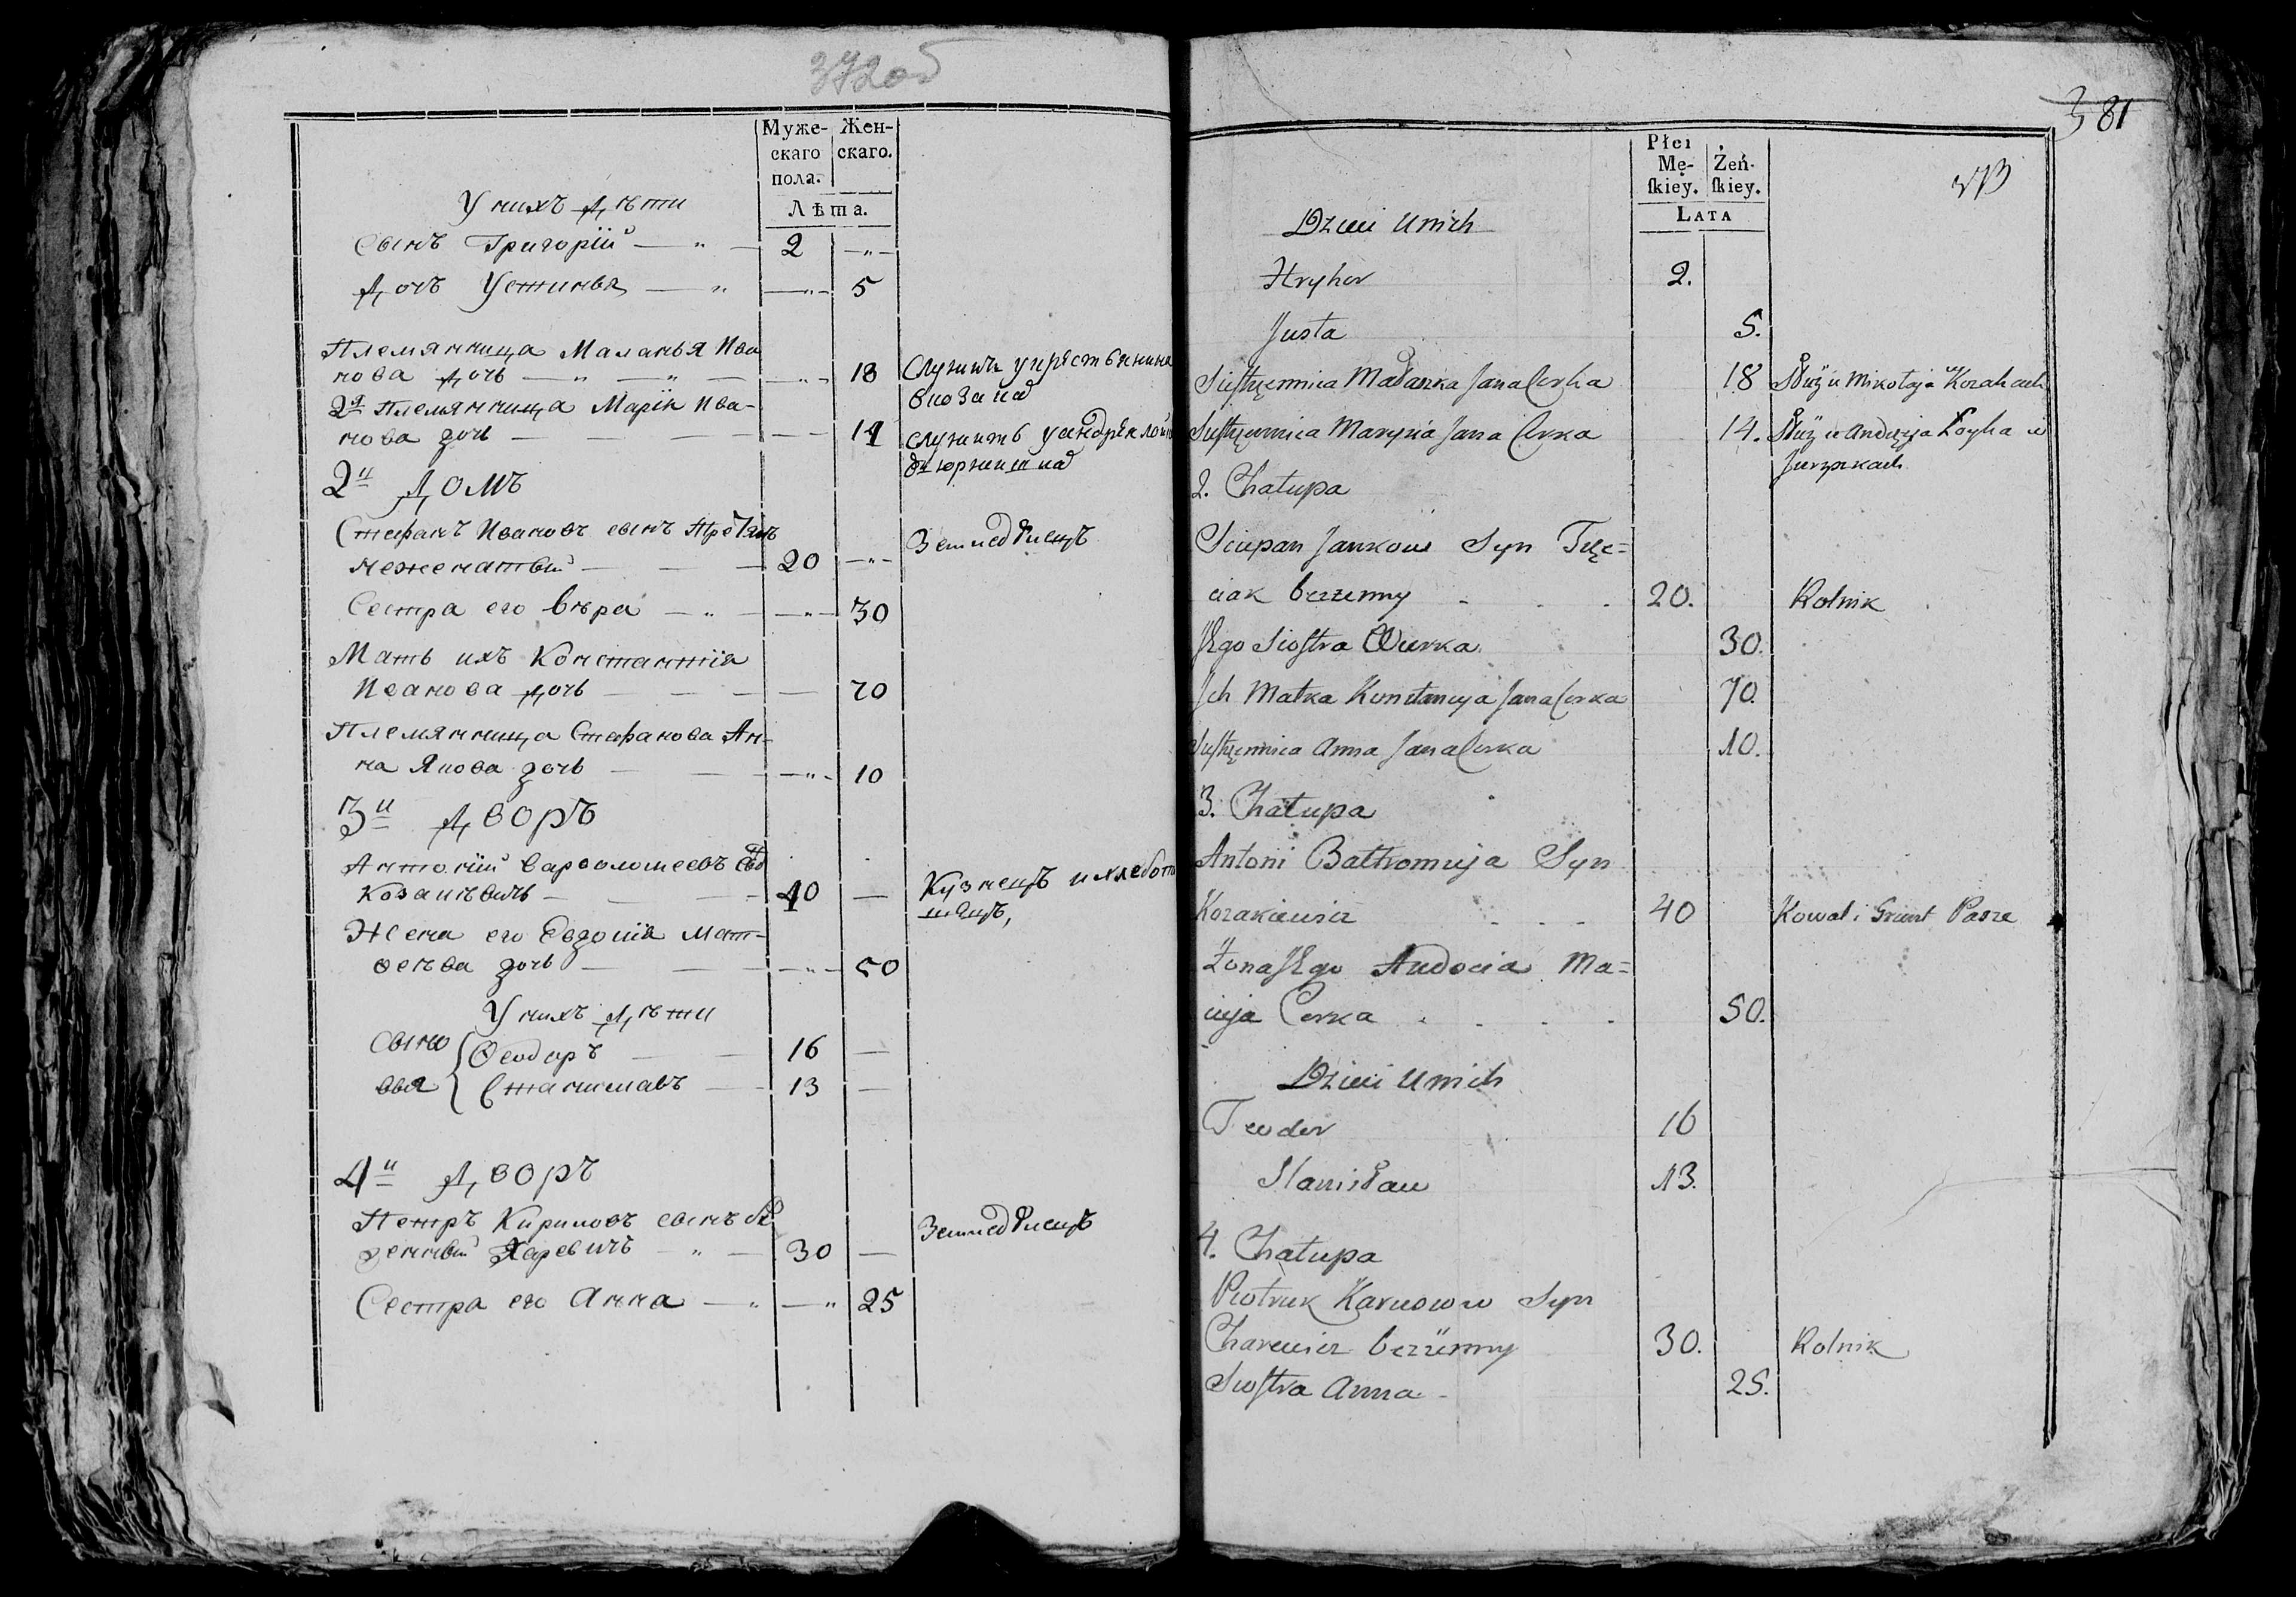 372об
Муже- Жен-
скаго скаго.
пола.
Лѣта.
У нихъ дѣти
сынъ Григорій — „ — 2 — „ —
дочь Устинья — „ — „ — 5
Племянница Маланья Ива
нова дочь — „ — „ — „ — 18 Служитъ
2я Племянница Марія Ива-
нова дочь — 14 служитъ
2й домъ
Стефанъ Ивановъ сынъ
неженатый — 20 — „ — Земледѣлецъ
Сестра его Вѣра — „ — „ — 30
Мать ихъ Константія
Иванова дочь — 70
Племянница Стефанова Ан-
на Янова дочь — „ — 10
3й дворъ
Антоній Варфоломеевъ
Козакѣвичъ — 40 — Кузнецъ и хлебопа
шецъ,
Жена его Евдокія Мат-
вѣева дочь — „ — 50
У нихъ дѣти
сыно Ѳеодоръ — 16 —
вья Станиславъ — 13 —
4й дворъ
Петръ Кириловъ сынъ
Харевичъ — „ — 30 — Земледѣлецъ
Сестра его Анна — „ — „ 25
381
Płci
Mę- Żeń-
skiey. skiey.
LATA
Dzieci u nich
Hryhor 2.
Justa 5.
Siestrzennica Małanka Jana Corka 18 Słuzy u Mikołaja Kozak
Siestrzennica Maryia Jana Corka 14. Słuzy u Andrzeja Łoyka w
Jurzykach
2. Chałupa
Sciepan Jankow Syn Trze=
ciak bezżenny . . . 20. Rolnik
Jego Siostra Wierka 30.
Ich Matka Konstancyja Jana Corka 70.
Siestrzennica Anna Jana Corka 10.
3. Chałupa
Antoni Bałtromieja Syn
Kozakiewicz . . . 40 Kowal i Grunt Pasze
Żona Jego Audocia Ma=
cieja Corka . . . . 50.
Dzieci u nich
Teodor 16
Stanisław 13.
4. Chałupa
Piotruk Syn
Charewicz bezżenny 30. Rolnik
Siostra Anna - 25.